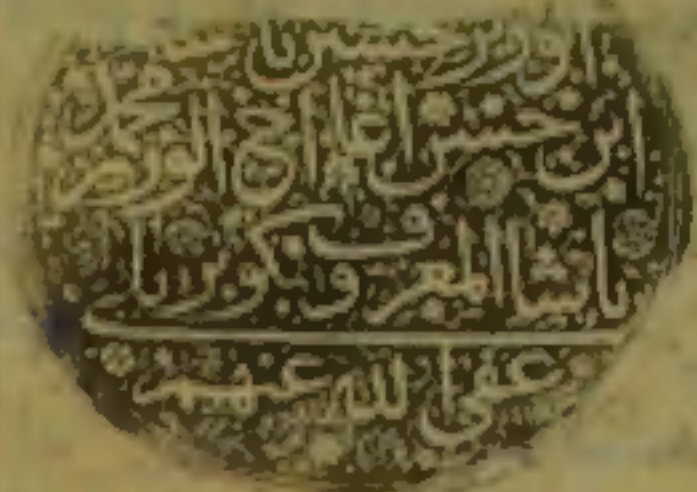 الوزير حسين باشا
ابن حسن اغا اخ الوزير محمد
باشا المعروف بكوبريلى
عفى الله عنهم